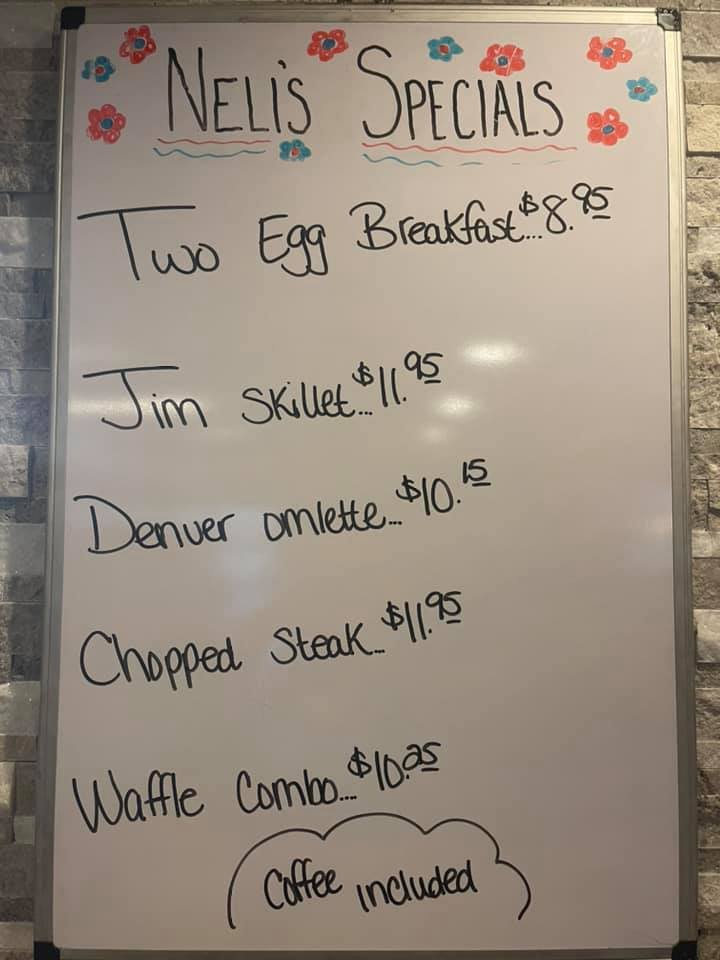 NELI'S SPECIALS
Two Egg Breakfast...$8.95
Jim Skillet...$11.95
Denver omlette...$10.15
Chopped Steak...$11.95
Waffle Combo...$10.25
Coffee included